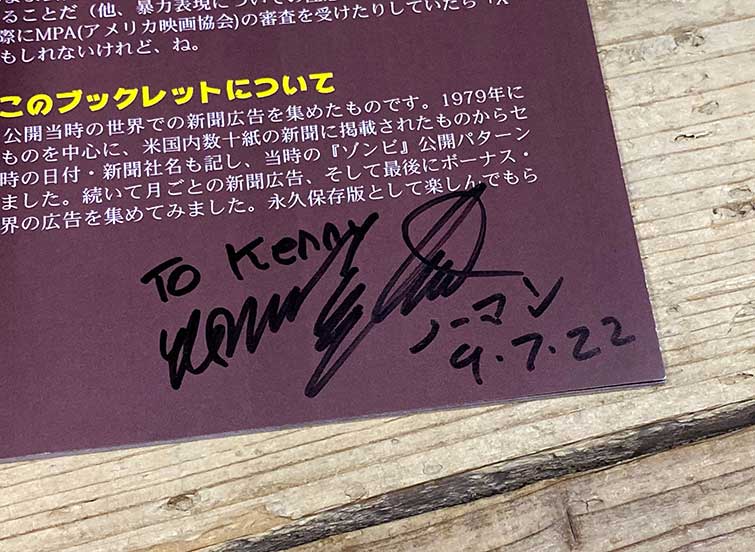 ることだ（他、暴力表現についての
際にMPA(アメリカ映画協会)の審査を受けたりしていたら「X
もしれないけれど、ね。
このブックレットについて
公開当時の世界での新聞広告を集めたものです。1979年に
ものを中心に、米国内数十紙の新聞に掲載されたものからセ
時の日付・新聞社名も記し、当時の『ゾンビ』公開パターン
ました。続いて月ごとの新聞広告、そして最後にボーナス・
界の広告を集めてみました。永久保存版として楽しんでもら
To Kenny
ノーマン
9.7.22